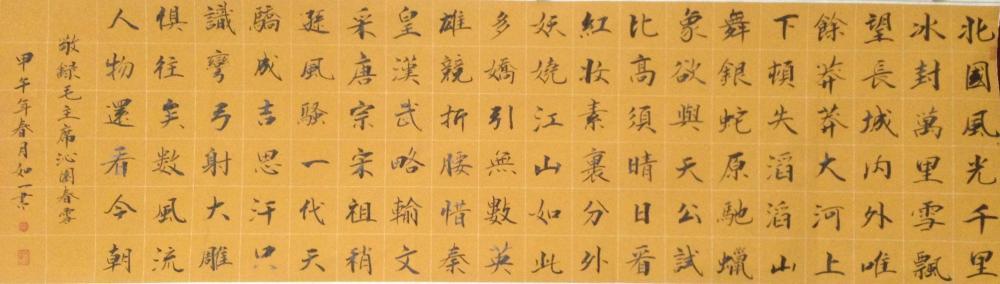 北國風光千里
冰封萬里雪飄
望長城内外唯
餘莽莽大河上
下頓失滔滔山
舞銀蛇原馳蠟
象欲與天公試
比高須晴日看
紅妝素裹分外
妖嬈江山如此
多嬌引無數英
雄競折腰惜秦
皇漢武略輸文
采唐宗宋祖稍
遜風騷一代天
驕成吉思汗只
識彎弓射大雕
俱往矣數風流
人物還看今朝
敬録毛主席沁園春雪
甲午年春月如一書